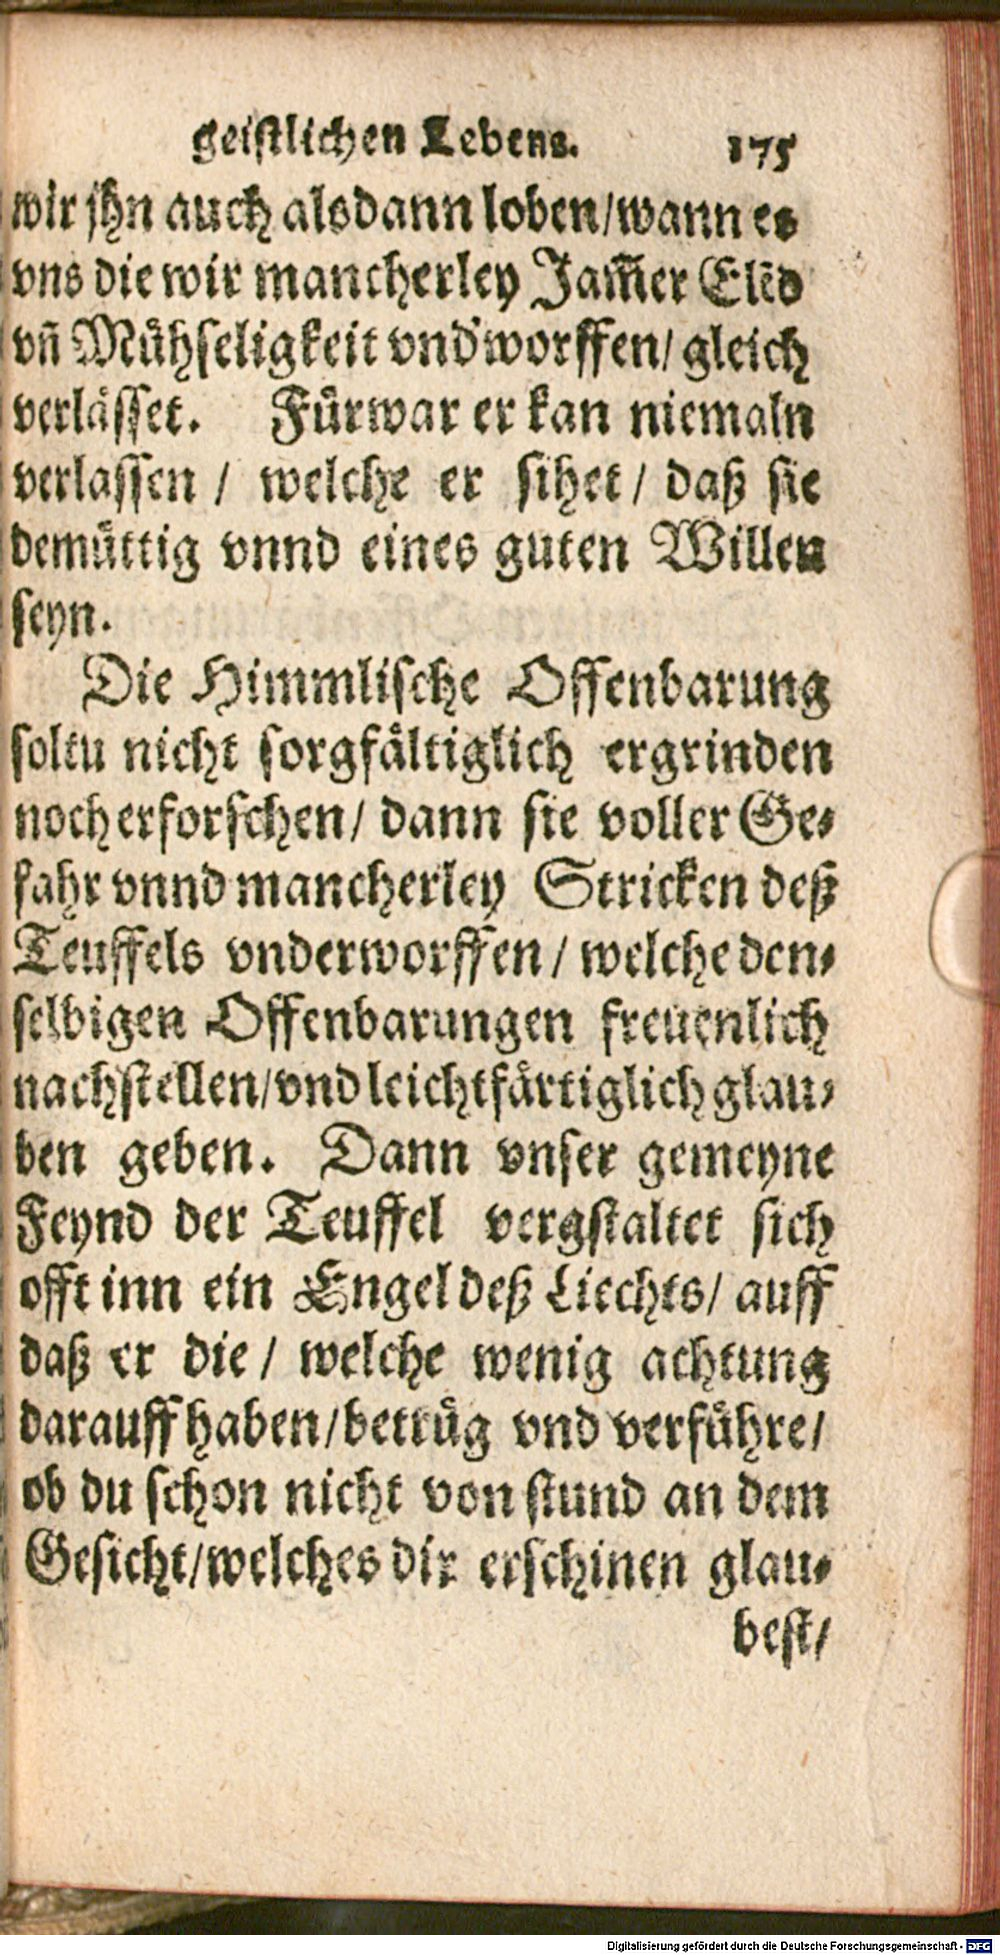 geistlichen Lebens. 175
wir jhn auch alsdann loben/wann es
vns die wir mancherley Jam̃er Elẽd
vñ Mühseligkeit vnd'worffen/ gleich
verlässet. Fürwar er kan niemaln
verlassen / welche er sihet / daß sie
demüttig vnnd eines guten Willen
seyn.
Die Himmlische Offenbarung
soltu nicht sorgfältiglich ergrinden
noch erforschen/ dann sie voller Ge-
fahr vnnd mancherley Stricken deß
Teuffels vnderworffen / welche den-
selbigen Offenbarungen freuenlich
nachstellen/vnd leichtfärtiglich glau-
ben geben. Dann vnser gemeyne
Feynd der Teuffel vergstaltet sich
offt inn ein Engel deß Liechts/ auff
daß er die / welche wenig achtung
darauff haben/betrüg vnd verführe/
ob du schon nicht von stund an dem
Gesicht/welches dir erschinen glau-
best/
Digitalisierung gefördert durch die Deutsche Forschungsgemeinschaft - DFG